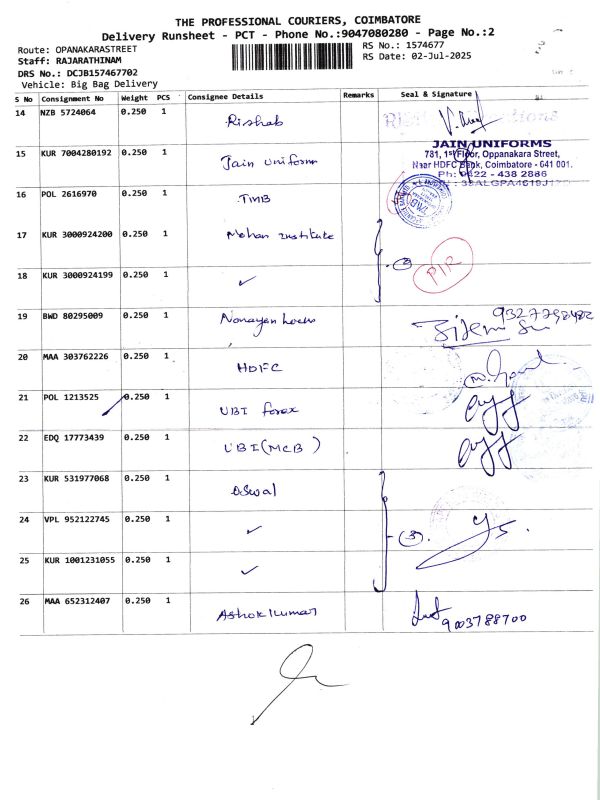 THE PROFESSIONAL COURIERS, COIMBATORE
Delivery Runsheet - PCT - Phone No.:9047080280 - Page No.:2
Route: OPANAKARASTREET
Staff: RAJARATHINAM
DRS No.: DCJB157467702
Vehicle: Big Bag Delivery
RS No.: 1574677
RS Date: 02-Jul-2025
S No Consignment No Weight PCS Consignee Details Remarks Seal & Signature
14 NZB 5724064 0.250 1 Rishab
15 KUR 7004280192 0.250 1 Jain Uniform
JAIN UNIFORMS
781, 1st Floor, Oppanakara Street,
Near HDFC Bank, Coimbatore - 641 001.
Ph: 0422 - 438 2886
16 POL 2616970 0.250 1 TMB
17 KUR 3000924200 0.250 1 Mohan institute
18 KUR 3000924199 0.250 1 ✓ 2 PIR
19 BWD 80295009 0.250 1
20 MAA 303762226 0.250 1 HDFC
21 POL 1213525 0.250 1 UBI forex
22 EDQ 17773439 0.250 1 UBI (MCB)
23 KUR 531977068 0.250 1 Oswal
24 VPL 952122745 0.250 1 ✓ 3
25 KUR 1001231055 0.250 1 ✓
26 MAA 652312407 0.250 1 Ashok Kumar 9003788700